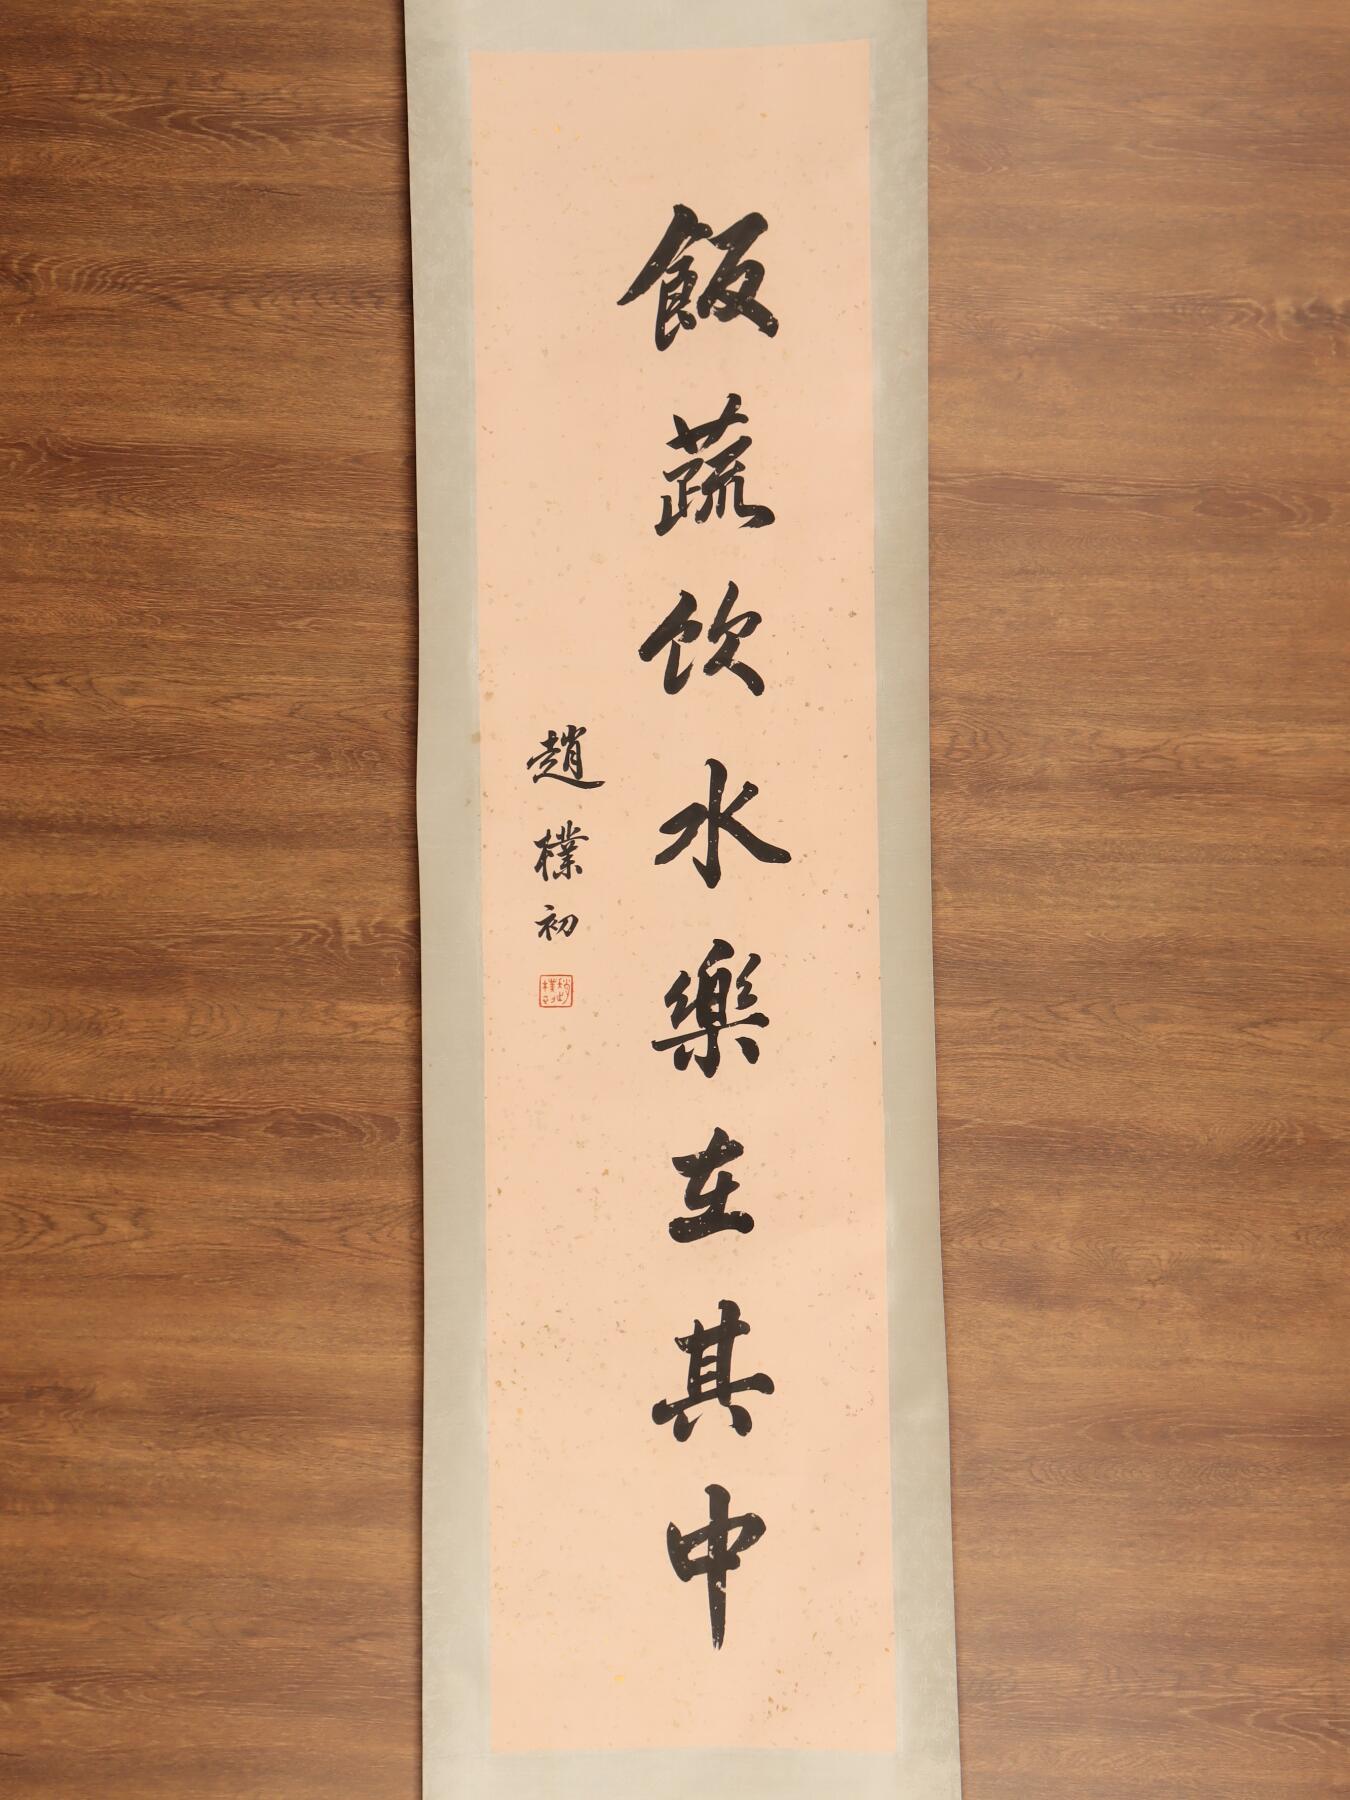 飯蔬飲水樂在其中
趙樸初